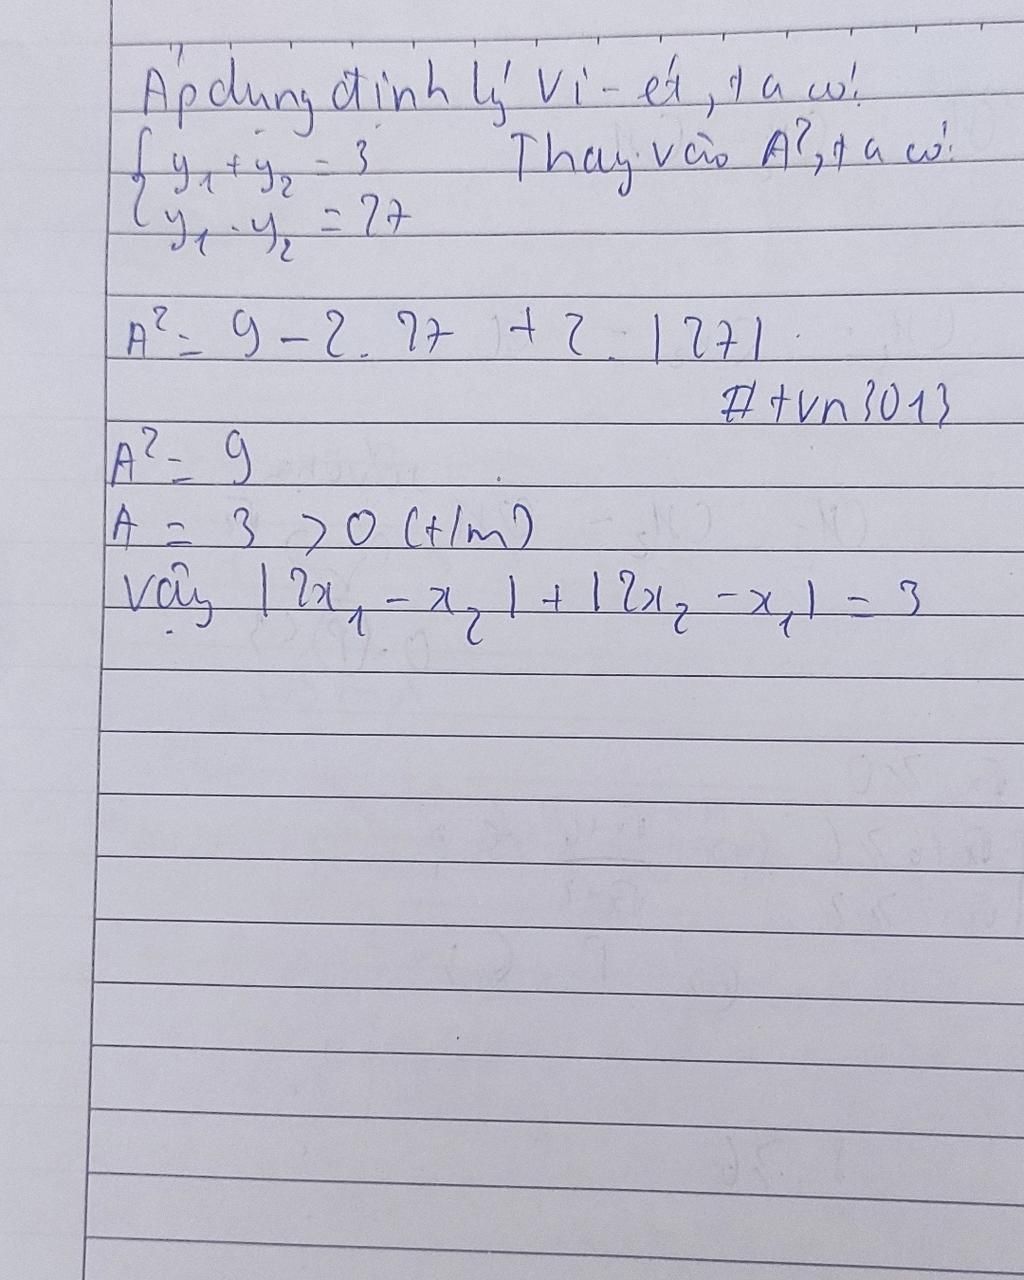 Áp dụng định lý Vi-ét, ta có:
{ y₁ + y₂ = 3 Thay vào A², ta có:
y₁ . y₂ = 27
A² = 9 - 2. 27 + 2. |27|
# tvn3013
A² = 9
A = 3 > 0 (t/m)
Vậy |2x₁ - x₂| + |2x₂ - x₁| = 3